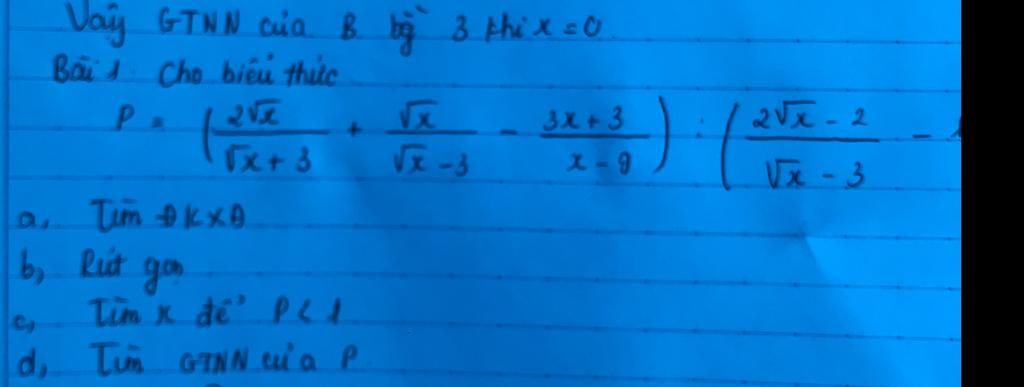 Vậy GTNN của B bg 3 khi x = 0
Bài 1. Cho biểu thức
P = (2√x / (√x + 3) + √x / (√x - 3) - (3x + 3) / (x - 9)) : ((2√x - 2) / (√x - 3) -
a, Tìm ĐKXĐ
b, Rút gọn
c, Tìm x để P < 1
d, Tìm GTNN của P